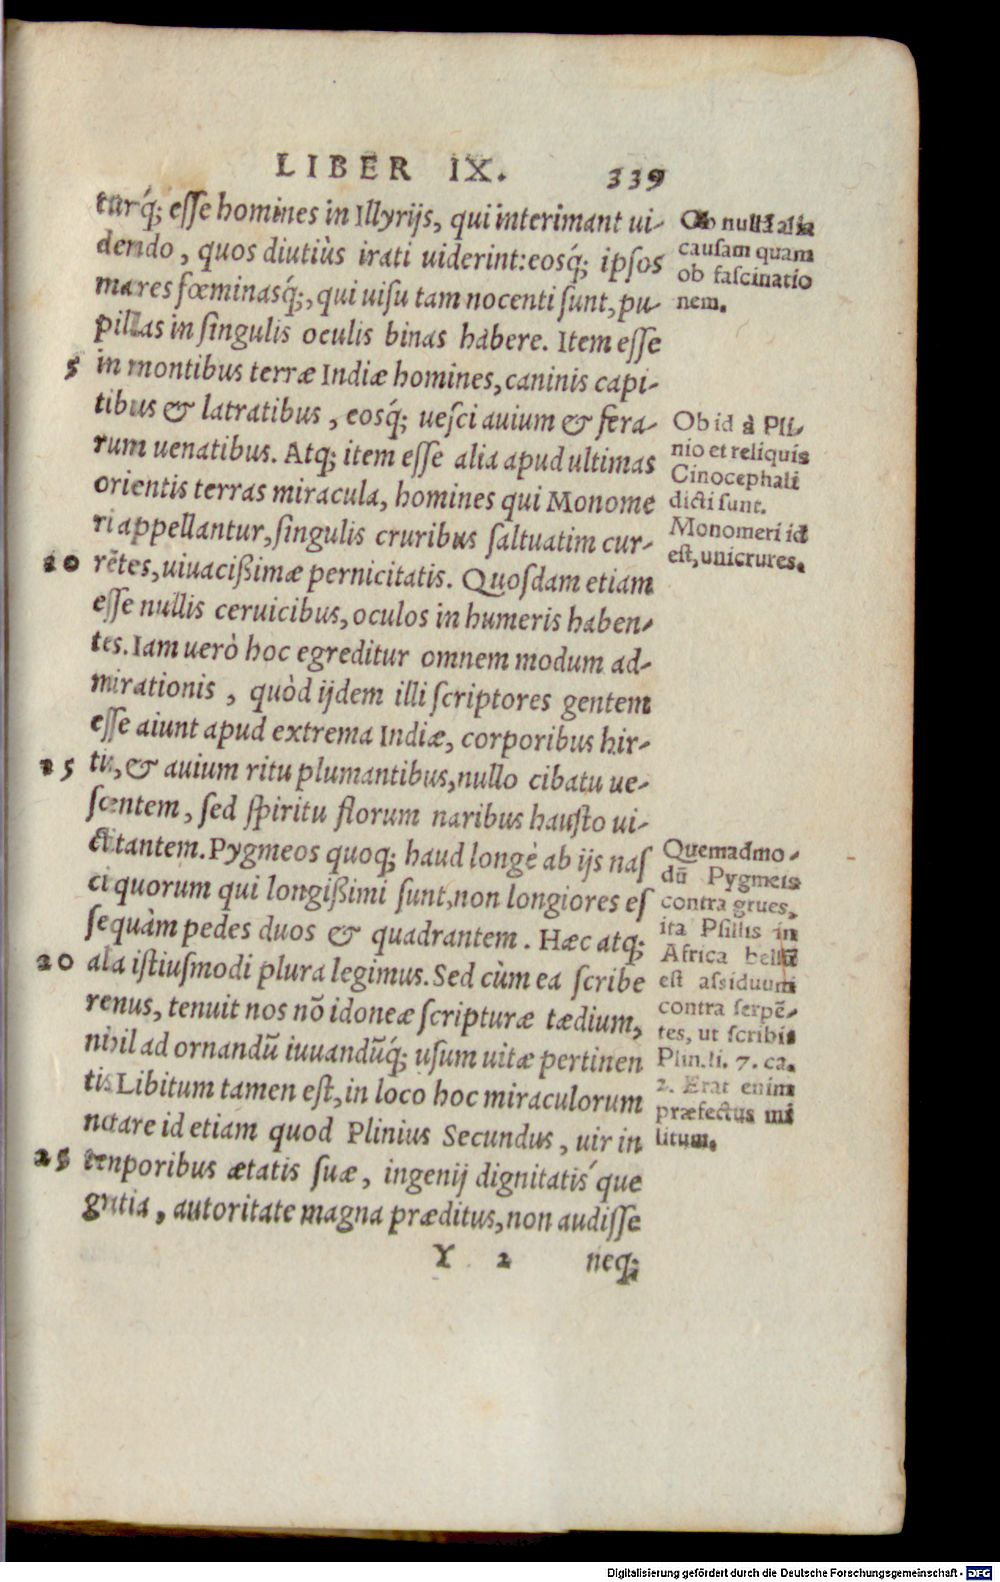 LIBER IX. 339
turq́; esse homines in Illyrijs, qui interimant ui-
dendo, quos diutiùs irati uiderint: eosq́; ipsos
mares fœminasq́;, qui uisu tam nocenti sunt, pu-
pillas in singulis oculis binas habere. Item esse
5 in montibus terræ Indiæ homines, caninis capi-
tibus & latratibus, eosq́; uesci auium & fera-
rum uenatibus. Atq; item esse alia apud ultimas
orientis terras miracula, homines qui Monome
ri appellantur, singulis cruribus saltuatim cur-
10 rẽtes, uiuacißimæ pernicitatis. Quosdam etiam
esse nullis ceruicibus, oculos in humeris haben-
tes. Iam uerò hoc egreditur omnem modum ad-
mirationis, quòd ijdem illi scriptores gentem
esse aiunt apud extrema Indiæ, corporibus hir-
15 tis, & auium ritu plumantibus, nullo cibatu ue-
scentem, sed spiritu florum naribus hausto ui-
ctitantem. Pygmeos quoq; haud longè ab ijs nas
ci quorum qui longißimi sunt, non longiores es
se quàm pedes duos & quadrantem. Hæc atq;
20 alia istiusmodi plura legimus. Sed cùm ea scribe
remus, tenuit nos nõ idoneæ scripturæ tædium,
nihil ad ornandũ iuuandũq́; usum uitæ pertinen
tis Libitum tamen est, in loco hoc miraculorum
notare id etiam quod Plinius Secundus, uir in
25 temporibus ætatis suæ, ingenij dignitatiś que
gratia, autoritate magna præditus, non audisse
Y 2 neq;
Ob nullã aliã
causam quam
ob fascinatio
nem.
Ob id à Pli-
nio et reliquis
Cinocephali
dicti sunt.
Monomeri id
est, unicrures.
Quemadmo-
dũ Pygmeis
contra grues,
ita Psillis in
Africa bellũ
est assiduum
contra serpẽ-
tes, ut scribit
Plin. li. 7. ca.
2. Erat enim
præfectus mi
litum.
Digitalisierung gefördert durch die Deutsche Forschungsgemeinschaft - DFG